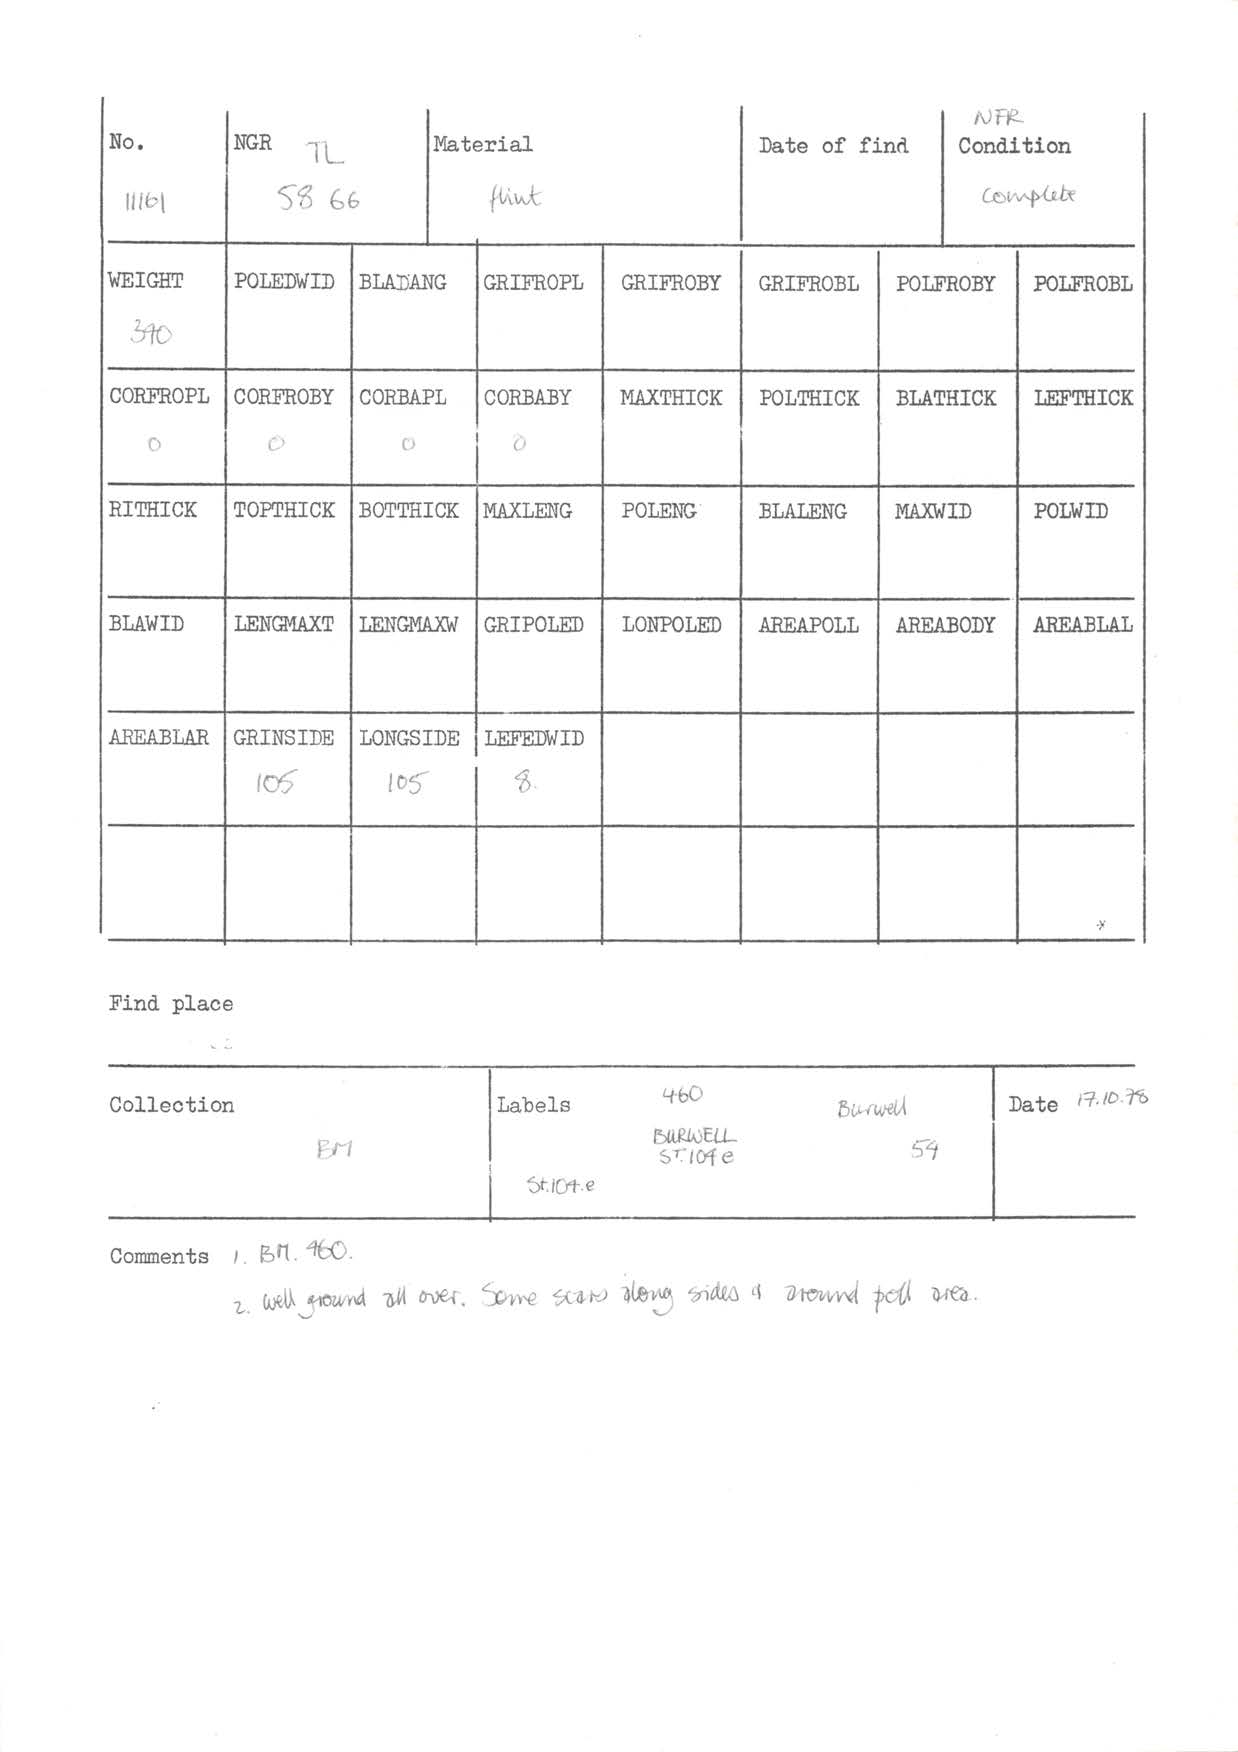 NFR
No. NGR TL Material Date of find Condition
11161 58 66 flint complete
WEIGHT POLEDWID BLADANG GRIFROPL GRIFROBY GRIFROBL POLFROBY POLFROBL
390
CORFROPL CORFROBY CORBAPL CORBABY MAXTHICK POLTHICK BLATHICK LEFTHICK
0 0 0 0
RITHICK TOPTHICK BOTTHICK MAXLENG POLENG BLALENG MAXWID POLWID
BLAWID LENGMAXT LENGMAXW GRIPOLED LONPOLED AREAPOLL AREABODY AREABLAL
AREABLAR GRINSIDE LONGSIDE LEFEDWID
105 105 8.
Find place
Collection Labels 460 Burwell Date 17.10.78
BM BURWELL 54
ST.104 e
St.104.e
Comments 1. BM. 460.
2. well ground all over. Some scars along sides & around poll area.